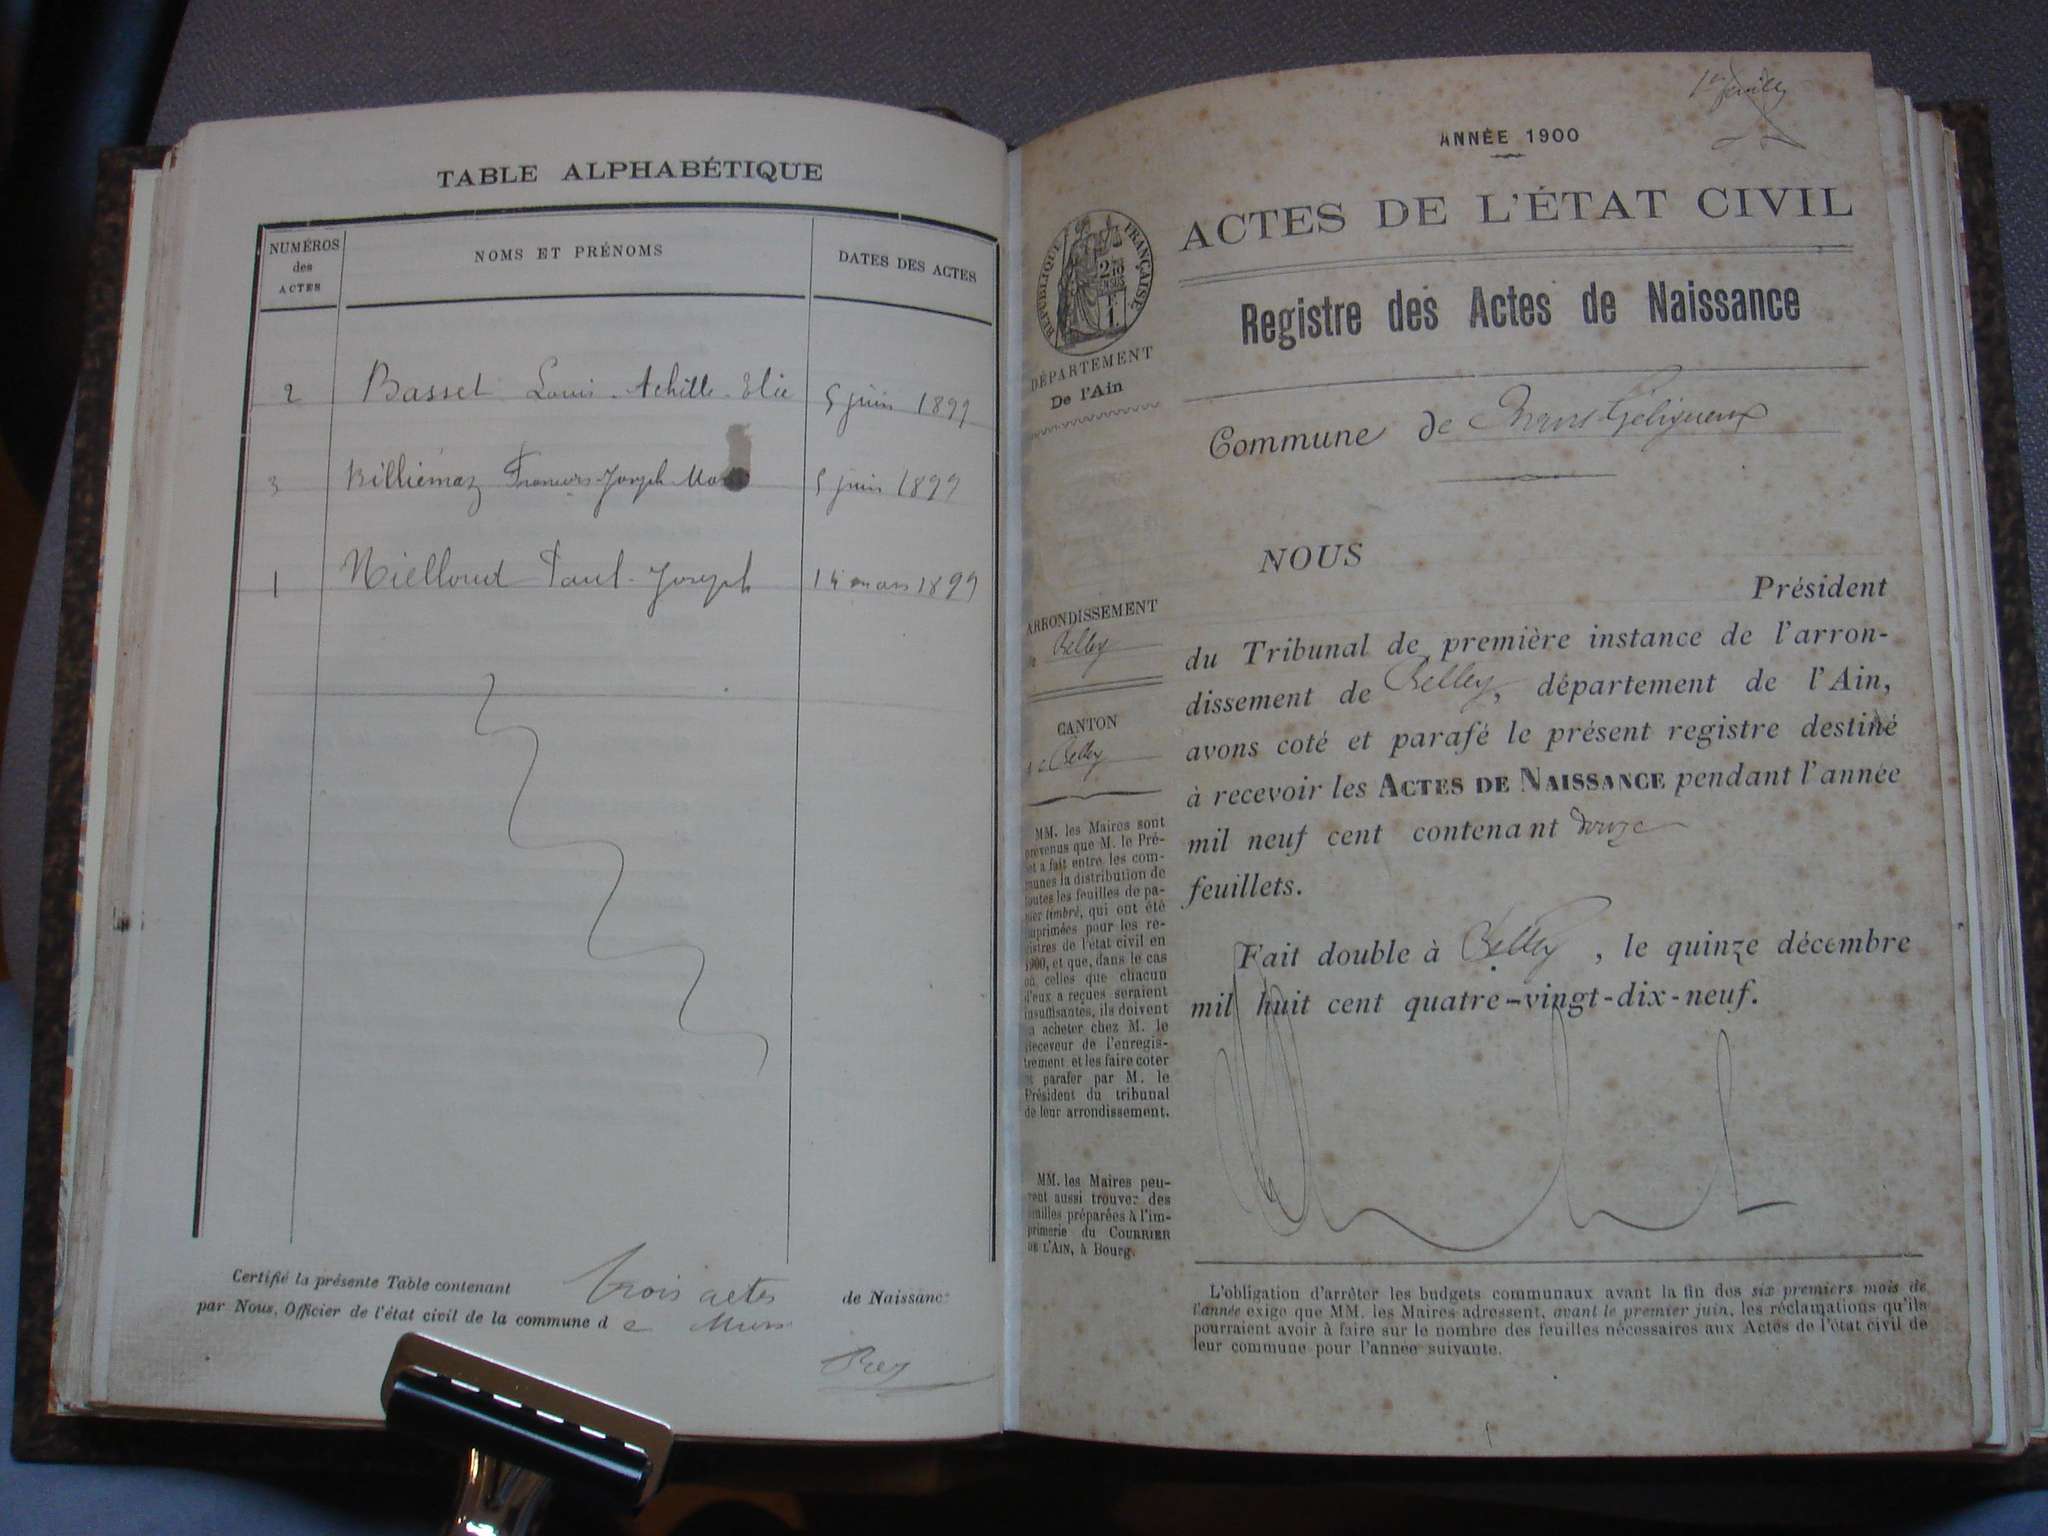 TABLE ALPHABÉTIQUE
NUMÉROS des ACTES
NOMS ET PRÉNOMS
DATES DES ACTES
2 Basset Louis-Achille-Elie 5 juin 1899
3 Billiémaz Joseph 5 juin 1899
1 Nielloud Paul-Joseph 14 mars 1899
Certifié la présente Table contenant trois actes de Naissance
par Nous, Officier de l'état civil de la commune de Murs
1er feuillet
ANNÉE 1900
ACTES DE L'ÉTAT CIVIL
RÉPUBLIQUE FRANÇAISE
DÉPARTEMENT
De l'Ain
Registre des Actes de Naissance
Commune de Murs-Géligneux
NOUS
Président
du Tribunal de première instance de l'arron-
dissement de Belley, département de l'Ain,
avons coté et parafé le présent registre destiné
à recevoir les ACTES DE NAISSANCE pendant l'année
mil neuf cent contenant douze
feuillets.
Fait double à Belley, le quinze décembre
mil huit cent quatre-vingt-dix-neuf.
ARRONDISSEMENT
de Belley
CANTON
de Belley
MM. les Maires sont
prévenus que M. le Pré-
fet a fait entre les com-
munes la distribution de
toutes les feuilles de pa-
pier timbré, qui ont été
imprimées pour les re-
gistres de l'état civil en
1900, et que, dans le cas
où celles que chacun
d'eux a reçues seraient
insuffisantes, ils doivent
en acheter chez M. le
Receveur de l'enregis-
trement et les faire coter
et parafer par M. le
Président du tribunal
de leur arrondissement.
MM. les Maires peu-
vent aussi trouver des
feuilles préparées à l'im-
primerie du COURRIER
DE L'AIN, à Bourg.
L'obligation d'arrêter les budgets communaux avant la fin des six premiers mois de
l'année exige que MM. les Maires adressent, avant le premier juin, les réclamations qu'ils
pourraient avoir à faire sur le nombre des feuilles nécessaires aux Actes de l'état civil de
leur commune pour l'année suivante.